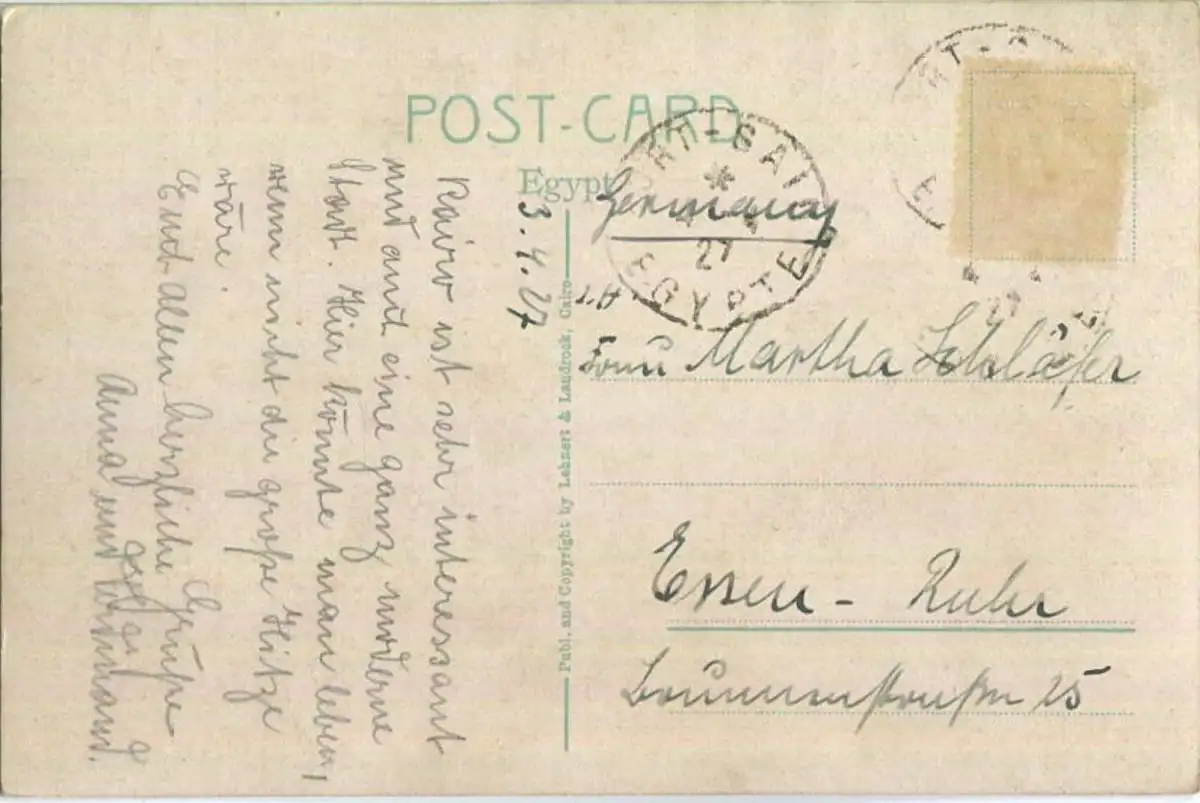 POST-CARD
Egypt
3.4.27
Kairo ist sehr interessant
und auch eine ganz moderne
Stadt. Hier könnte man leben,
wenn nicht die große Hitze
wäre.
Euch allen herzliche Grüße
Anna und
Publ. and Copyright by Lehnert & Landrock, Cairo
PORT-SAI
27
EGYPTE
Germany
Frau Martha Schläfer
Essen - Ruhr
Brunnenstraße 25